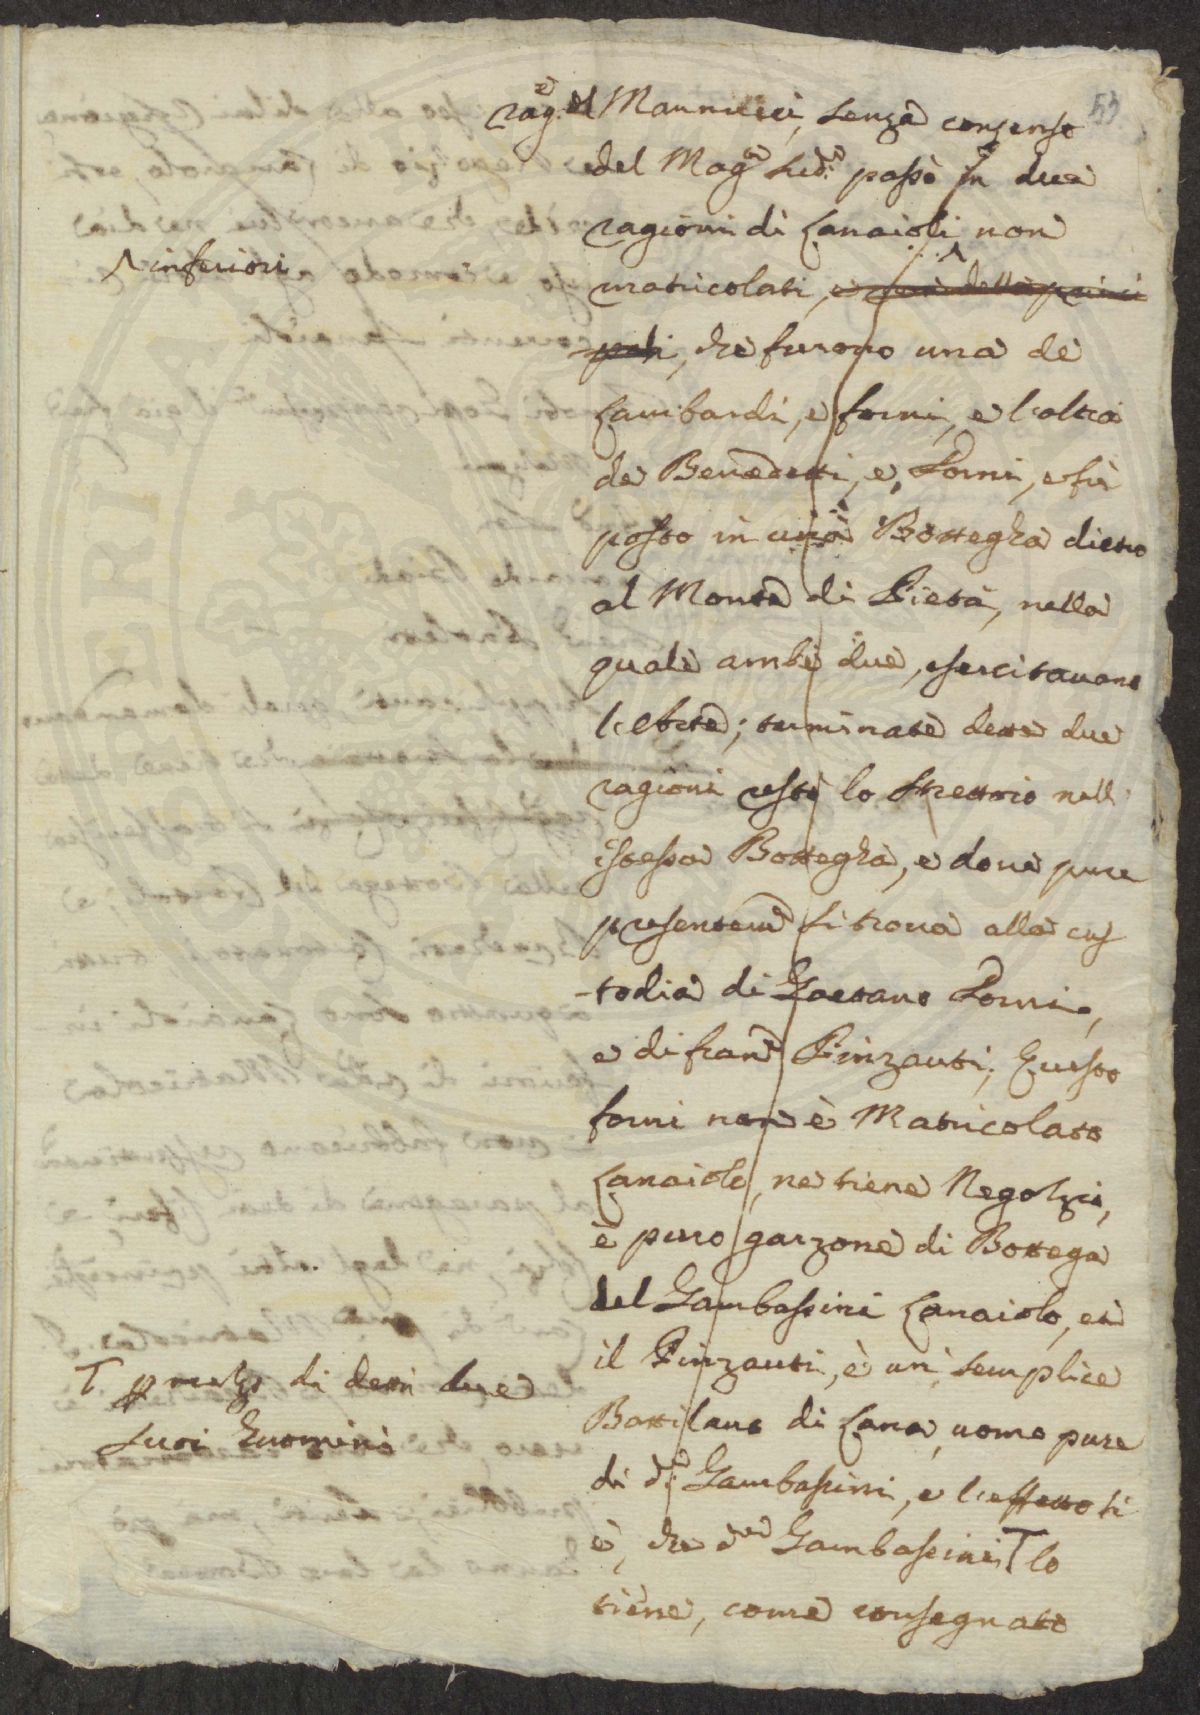 53
rag.e del Mannucci, senza consenso
del Mag.to sud.o passò in due
ragioni di Lanaioli non
^ inferiori
matricolati, e non delle princi
pali, che furono una de
Lambardi, e forni, e l'altra
de Benedetti, e, Porni, e fù
posto in una Bottegha dietro
al Monte di Pietà, nella
quale ambi due, esercitavano
l'Arte; terminate dette due
ragioni restò lo strettoio nell'
istessa Bottegha, e dove pure
presentem.e si trova alla cus
-todia di Gaetano Porni,
e di fran.co Pinzauti; Questo
forni non è Matricolato
Lanaiolo, ne tiene Negotzi,
è puro garzone di Bottega
del Gambassini Lanaiolo, et
il Pinzauti, è un' semplice
Battilano di Lana, uomo pure
di d.o Gambassini, e l'effetto si
è, che d.o Gambassini T lo
T p mezzo di detti due
suoi Huomini
tiene, come consegnato